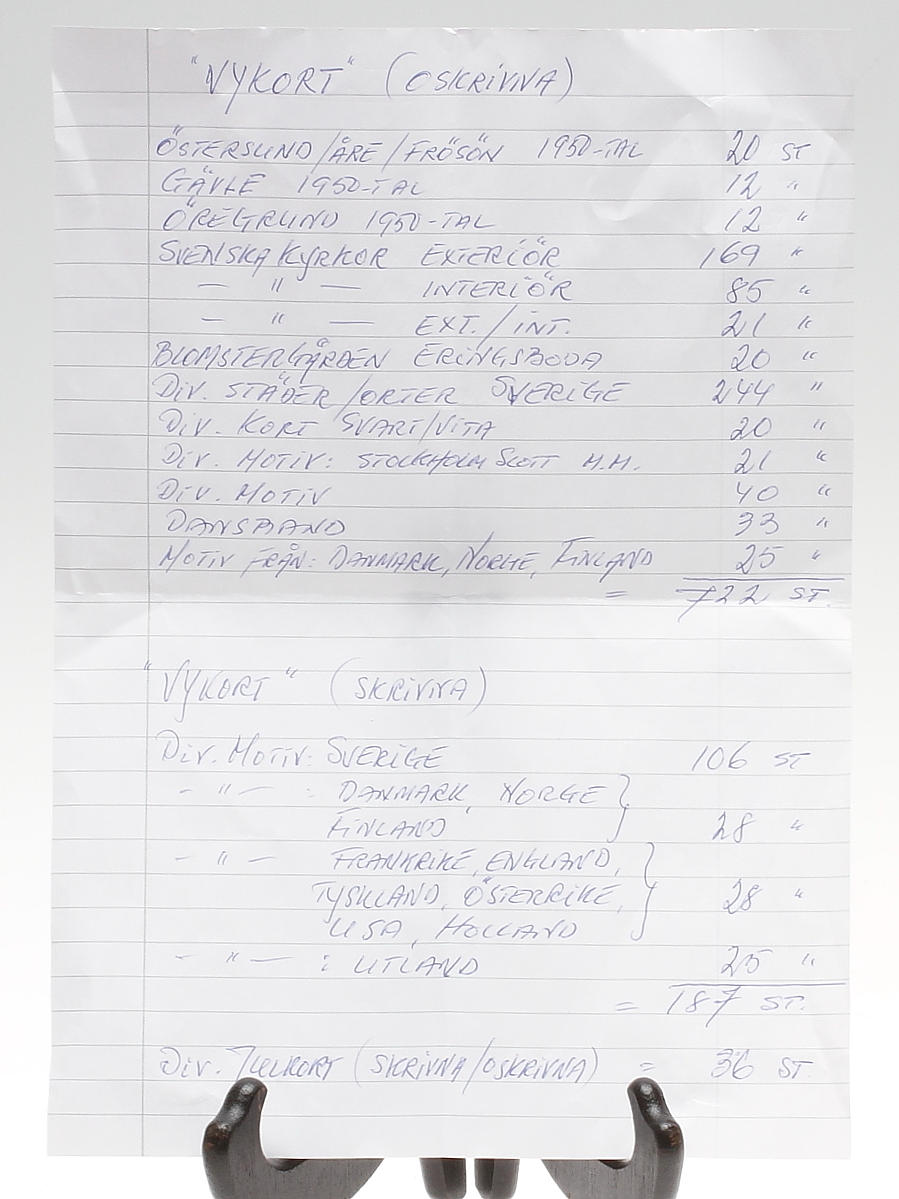 "VYKORT" (OSKRIVNA)
ÖSTERSUND/ÅRE/FRÖSÖN 1950-TAL 20 ST
GÄVLE 1950-TAL 12 "
ÖREGRUND 1950-TAL 12 "
SVENSKA KYRKOR EXTERIÖR 169 "
— " — INTERIÖR 85 "
— " — EXT./INT. 21 "
BLOMSTERGÅRDEN ERINGSBODA 20 "
DIV. STÄDER/ORTER SVERIGE 244 "
DIV. KORT SVART/VITA 20 "
DIV. MOTIV: STOCKHOLM SLOTT M.M. 21 "
DIV. MOTIV 40 "
DANSBAND 33 "
MOTIV FRÅN: DANMARK, NORGE, FINLAND 25 "
= 722 ST.
"VYKORT" (SKRIVNA)
DIV. MOTIV: SVERIGE 106 ST
- " - : DANMARK, NORGE
FINLAND 28 "
- " - FRANKRIKE, ENGLAND,
TYSKLAND, ÖSTERRIKE, 28 "
USA, HOLLAND
- " - : UTLAND 25 "
= 187 ST.
DIV. JULKORT (SKRIVNA/OSKRIVNA) = 36 ST.